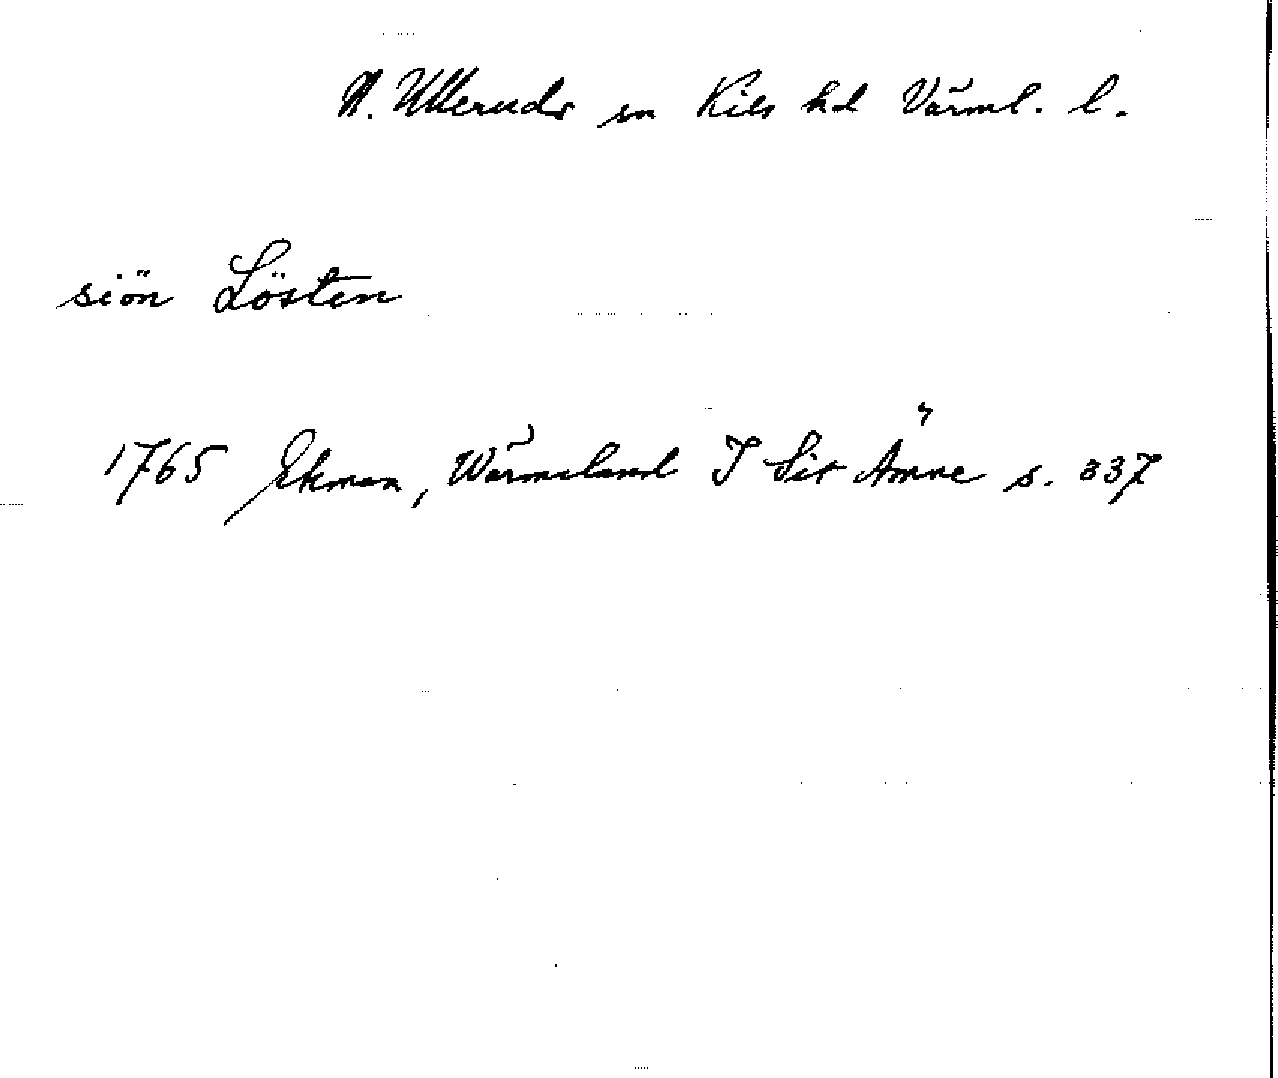 N. Ulleruds sn Kils hd Värml. l.
siön Lösten
1765 Ekman, Wärmeland I Sit Ämne s. 337